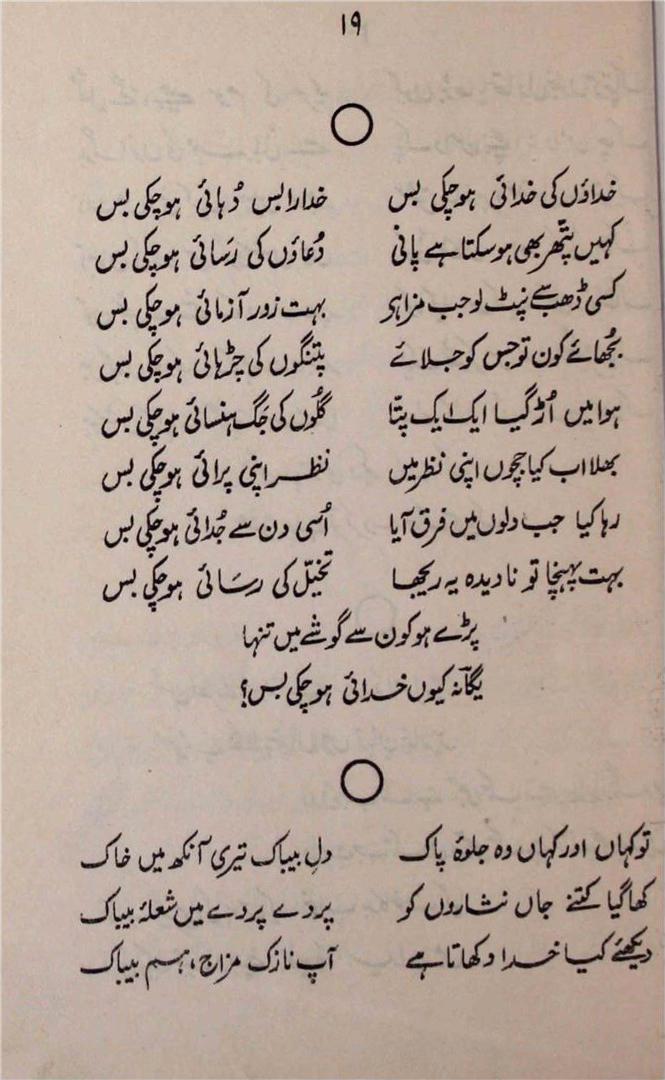 ۱۹
خداؤں کی خدائی ہوچکی بس خدارا بس دُہائی ہوچکی بس
کہیں پتّھر بھی ہوسکتا ہے پانی دُعاؤں کی رَسائی ہوچکی بس
کسی ڈھب سے نپٹ لو جب مزا ہر بہت زور آزمائی ہوچکی بس
بُجھائے کون تو جس کو جلائے پتنگوں کی چڑہائی ہوچکی بس
ہوا میں اُڑ گیا ایک ایک پتّا گلُوں کی جگ ہنسائی ہوچکی بس
بھلا اب کیا جچوں اپنی نظر میں نظر اپنی پرائی ہوچکی بس
رہا کیا جب دلوں میں فرق آیا اُسی دن سے جُدائی ہوچکی بس
بہت پہنچا تو نادیدہ پہ ریجھا تخیّل کی رسَائی ہوچکی بس
پڑے ہو کون سے گوشے میں تنہا
یگانہؔ کیوں خدائی ہوچکی بس؟
تو کہاں اور کہاں وہ جلوۂ پاک دلِ بیباک تیری آنکھ میں خاک
کھا گیا کتنے جاں نثاروں کو پردے پردے میں شعلۂ بیباک
دیکھئے کیا خدا دکھاتا ہے آپ نازک مزاج، ہم بیباک